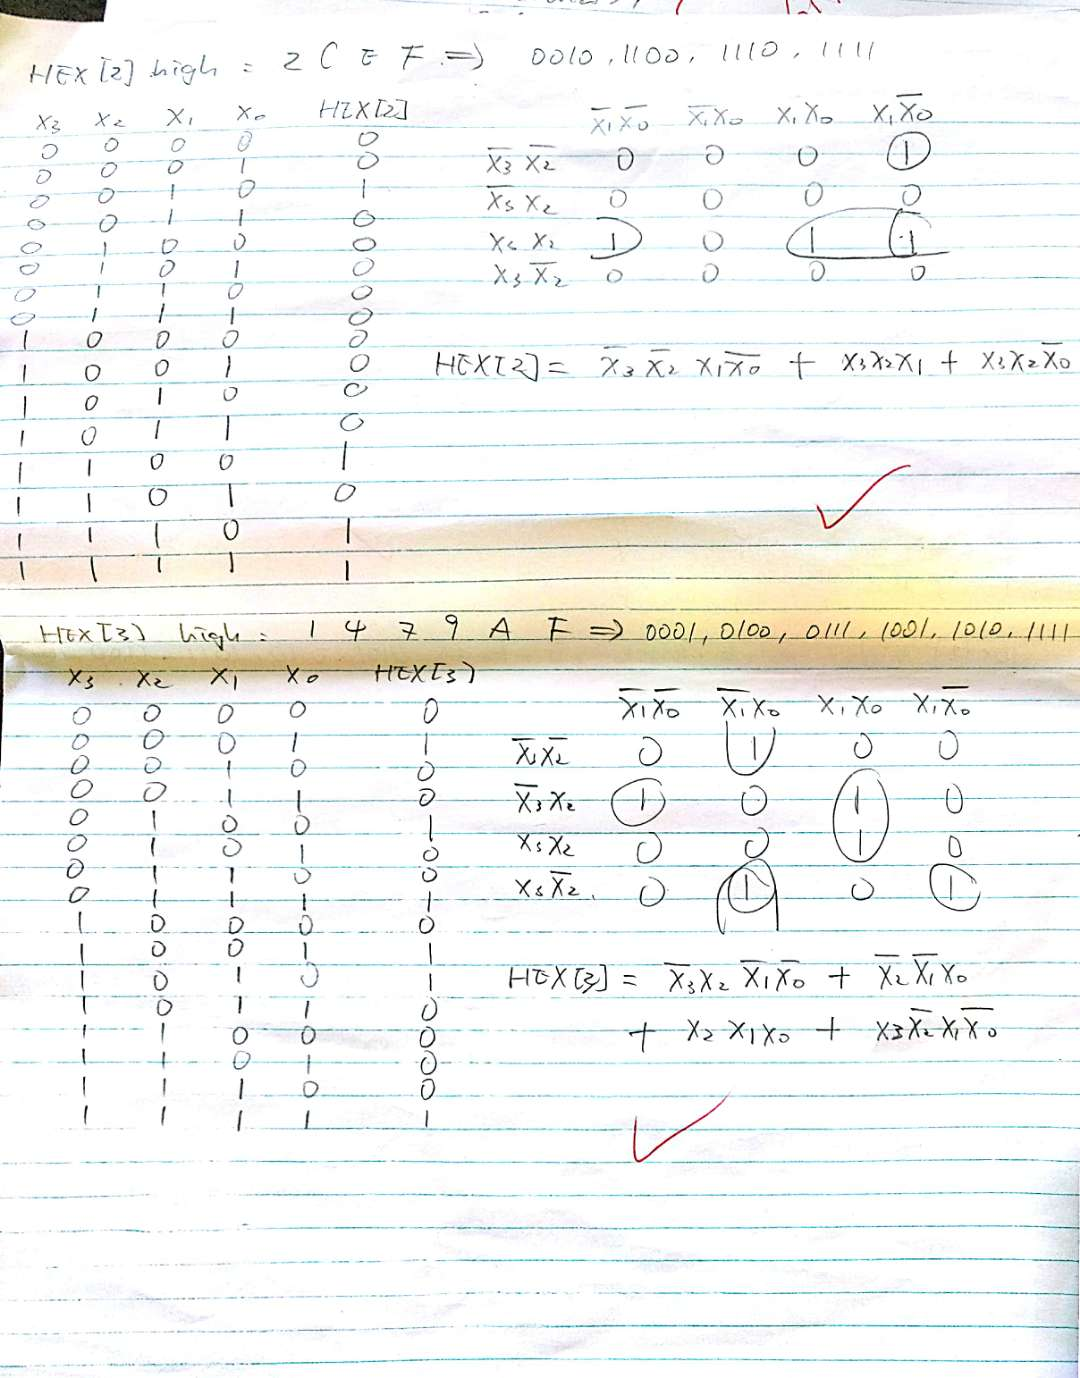 HEX[2] high : 2 C E F ⇒ 0010, 1100, 1110, 1111
X3 X2 X1 X0 HEX[2]
0 0 0 0 0
0 0 0 1 0
0 0 1 0 1
0 0 1 1 0
0 1 0 0 0
0 1 0 1 0
0 1 1 0 0
0 1 1 1 0
1 0 0 0 0
1 0 0 1 0
1 0 1 0 0
1 0 1 1 0
1 1 0 0 1
1 1 0 1 0
1 1 1 0 1
1 1 1 1 1
X̅1X̅0 X̅1X0 X1X0 X1X̅0
X̅3X̅2 0 0 0 1
X̅3X2 0 0 0 0
X3X2 1 0 1 1
X3X̅2 0 0 0 0
HEX[2] = X̅3X̅2X1X̅0 + X3X2X1 + X3X2X̅0
HEX[3] high : 1 4 7 9 A F ⇒ 0001, 0100, 0111, 1001, 1010, 1111
X3 X2 X1 X0 HEX[3]
0 0 0 0 0
0 0 0 1 1
0 0 1 0 0
0 0 1 1 0
0 1 0 0 1
0 1 0 1 0
0 1 1 0 0
0 1 1 1 1
1 0 0 0 0
1 0 0 1 1
1 0 1 0 1
1 0 1 1 0
1 1 0 0 0
1 1 0 1 0
1 1 1 0 0
1 1 1 1 1
X̅1X̅0 X̅1X0 X1X0 X1X̅0
X̅3X̅2 0 1 0 0
X̅3X2 1 0 1 0
X3X2 0 0 1 0
X3X̅2 0 1 0 1
HEX[3] = X̅3X2X̅1X̅0 + X̅2X̅1X0
+ X2X1X0 + X3X̅2X1X̅0